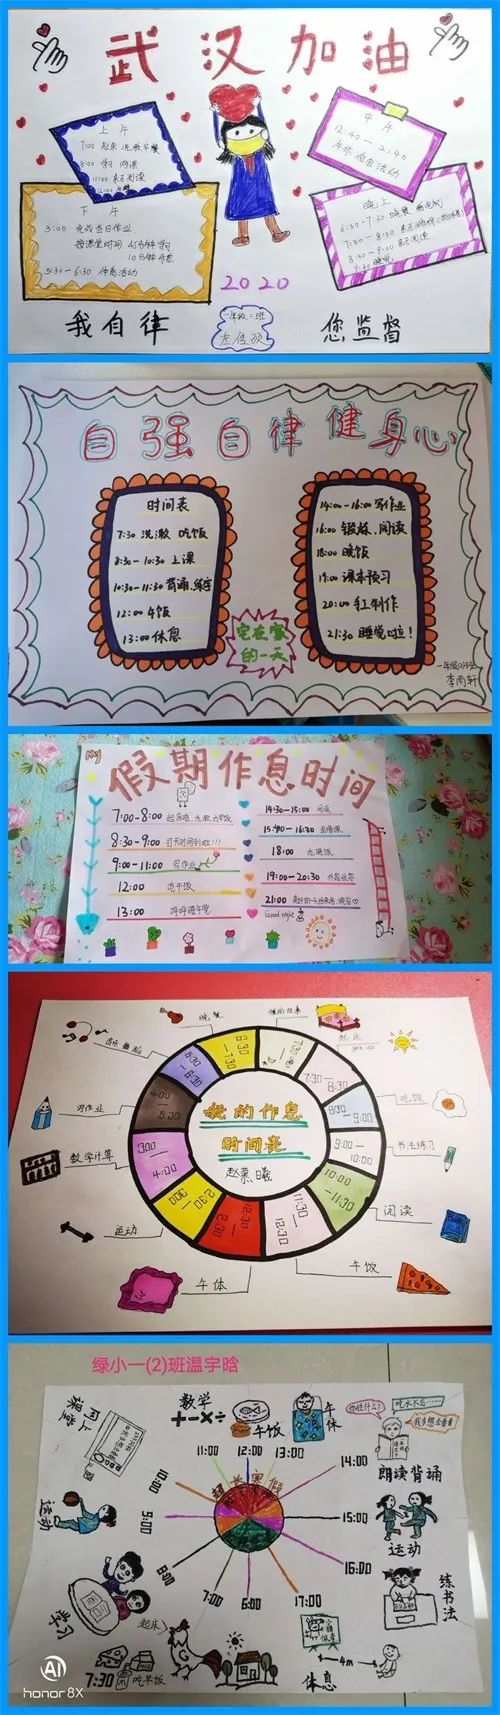 武汉加油
上午
7:00 起床 洗漱早餐
8:00 学习 阅读
11:00 亲子阅读
12:00 午餐
中午
12:40—2:40
午休 自由活动
下午
3:00 完成当日作业
按课堂时间 45分钟学习
10分钟休息
5:30—6:30 体育活动
晚上
6:30-7:30 晚餐 看电视
7:30-8:30 亲子游戏
8:30-9:00 亲子阅读
9:30 睡觉
2020
我自律
一年级二班
您监督
自强自律健身心
时间表
7:30 洗漱 吃饭
8:30-10:30 上课
10:30-11:30 背诵、练字
12:00 午饭
13:00 休息
14:00-16:00 写作业
16:00 锻炼、阅读
18:00 晚饭
19:00 课本预习
20:00 手工制作
21:30 睡觉啦!
宅在家
的一天
一年级(2)班
李雨轩
My
假期作息时间
7:00-8:00 起床啦 洗漱 吃早饭
8:30-9:00 打卡时间到啦!!!
9:00-11:00 写作业
12:00 吃午饭
13:00 呼呼睡午觉
14:30-15:00 阅读
15:00-16:30 直播课
18:00 吃晚饭
19:00-20:30
21:00
Good night
我的作息
时间表
赵慕曦
睡前故事
晚餐
起床
音乐舞蹈
吃饭
写作业
书法练习
数学计算
阅读
运动
午饭
午休
6:30-7:30
7:30-8:30
9:00-10:00
10:00-11:30
11:30-12:30
绿小一(2)班温宇晗
数学
+-×÷
午饭
午休
网上学课
11:00
12:00
13:00
10:00
14:00
朗读背诵
运动
9:00
15:00
运动
8:00
16:00
练书法
学习
7:00
6:00
17:00
起床
7:30 吃早饭
休息
4m
AI
honor 8X